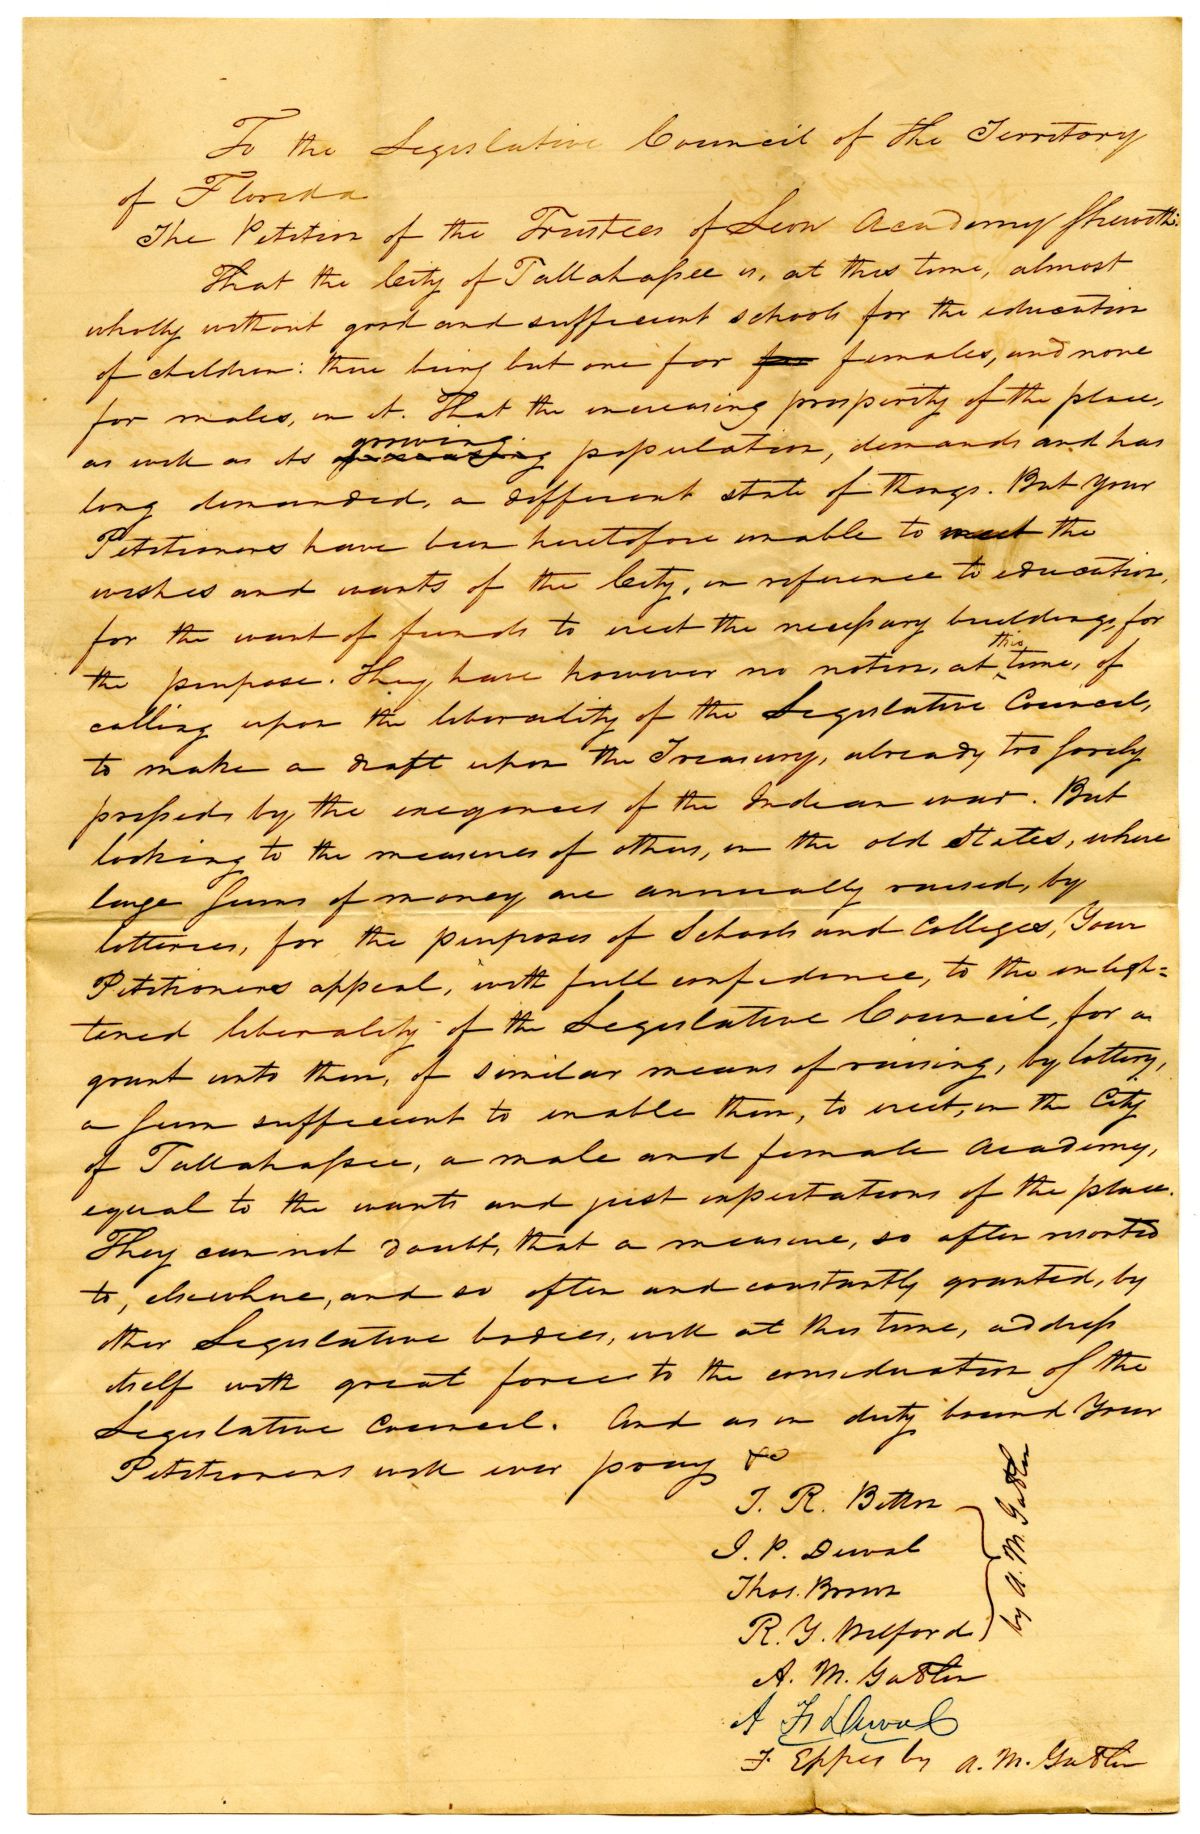 To the Legislative Council of the Territory
of Florida
The Petition of the Trustees of Leon Academy Sheweth:
That the City of Tallahassee is, at this time, almost
wholly without good and sufficient schools for the education
of children: there being but one for for females, and none
for males, in it. That the increasing prosperity of the place,
as well as its growing population, demands and has
long demanded, a different state of things. But your
Petitioners have been heretofore unable to meet the
wishes and wants of the City, in reference to education,
for the want of funds to erect the necessary buildings for
the purpose. They have however no notion, at this time, of
calling upon the liberality of the Legislative Council,
to make a draft upon the Treasury, already too sorely
pressed by the exegences of the Indian war. But
looking to the measures of others, in the old States, where
large sums of money are annually raised, by
lotteries, for the purposes of Schools and Colleges, Your
Petitioners appeal, with full confidence, to the enligh=
tened liberality of the Legislative Council, for a
grant unto them, of similar means of raising, by lottery,
a sum sufficient to enable them, to erect, in the City
of Tallahassee, a male and female Academy,
equal to the wants and just expectations of the place.
They can not doubt, that a measure, so often resorted
to, elsewhere, and so often and constantly granted, by
other Legislative bodies, will at this time, address
itself with great force to the consideration of the
Legislative Council. And as in duty bound Your
Petitioners will ever pray &c
T. R. Betton
I. P. Duval
Thos. Brown
R. Y. Welford
by A. M. Gatlin
A. M. Gatlin
F. Eppes by A. M. Gatlin